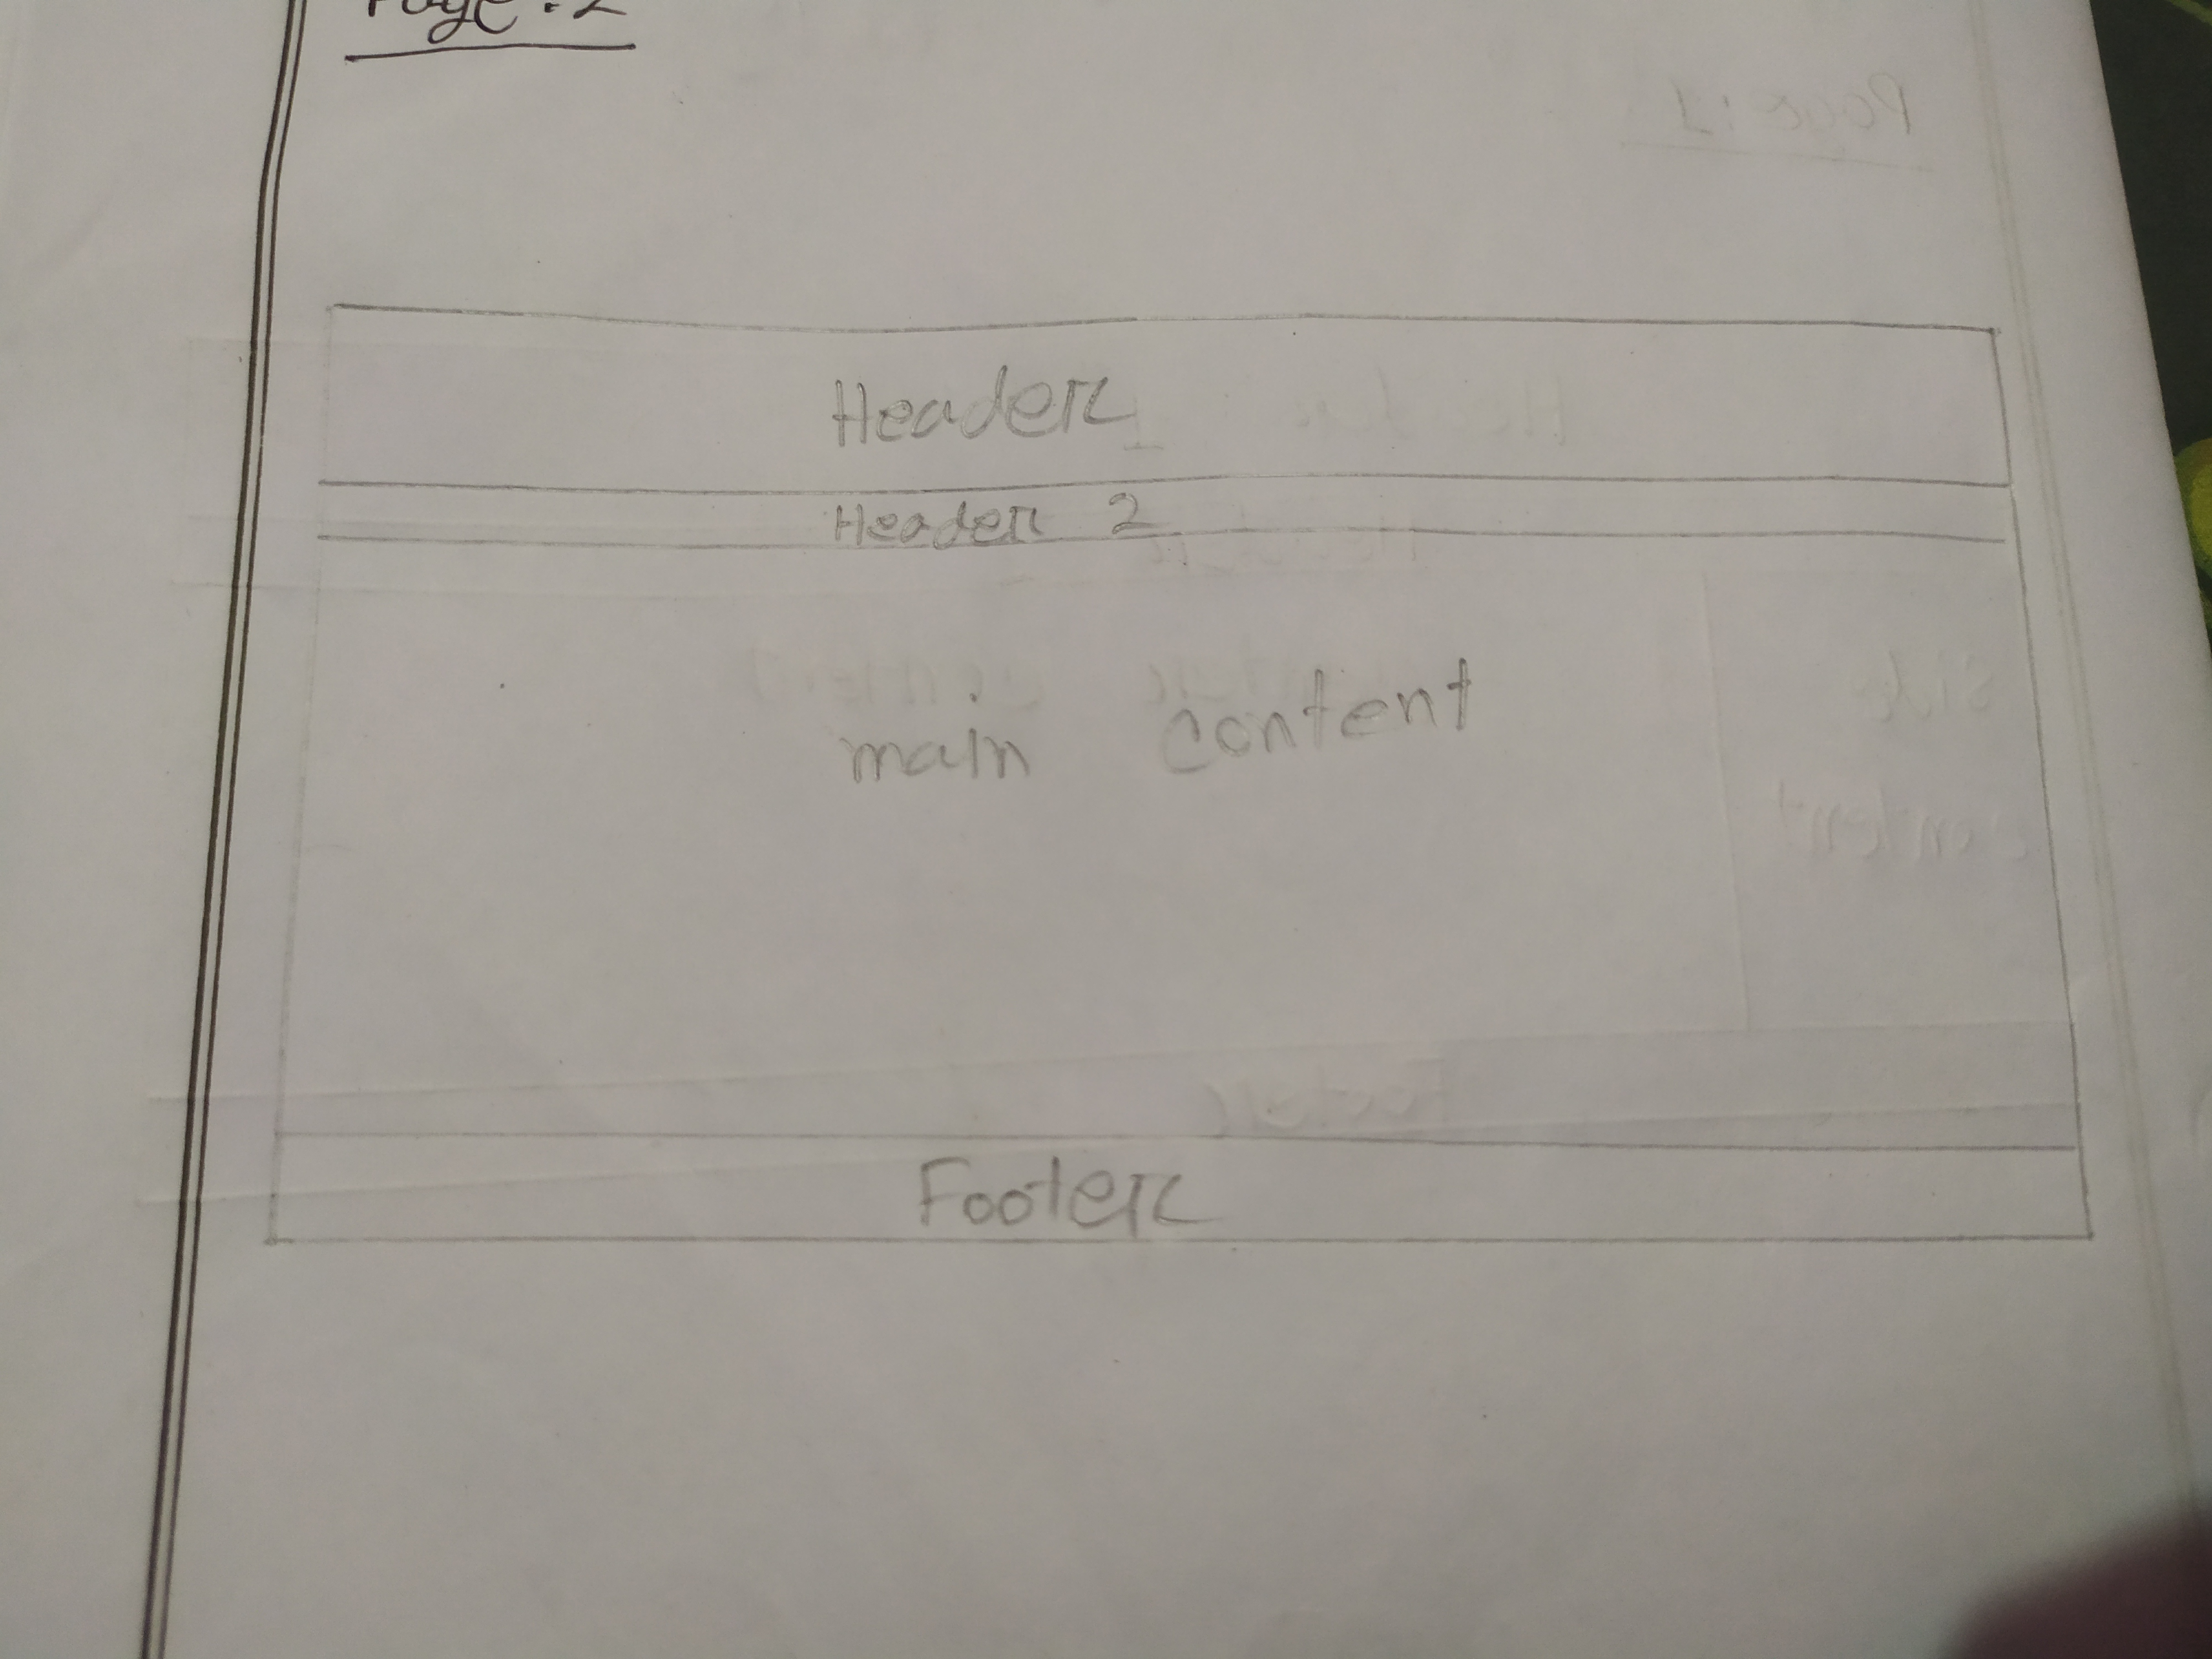 Page : 2
Header
Header 2
main content
Footer